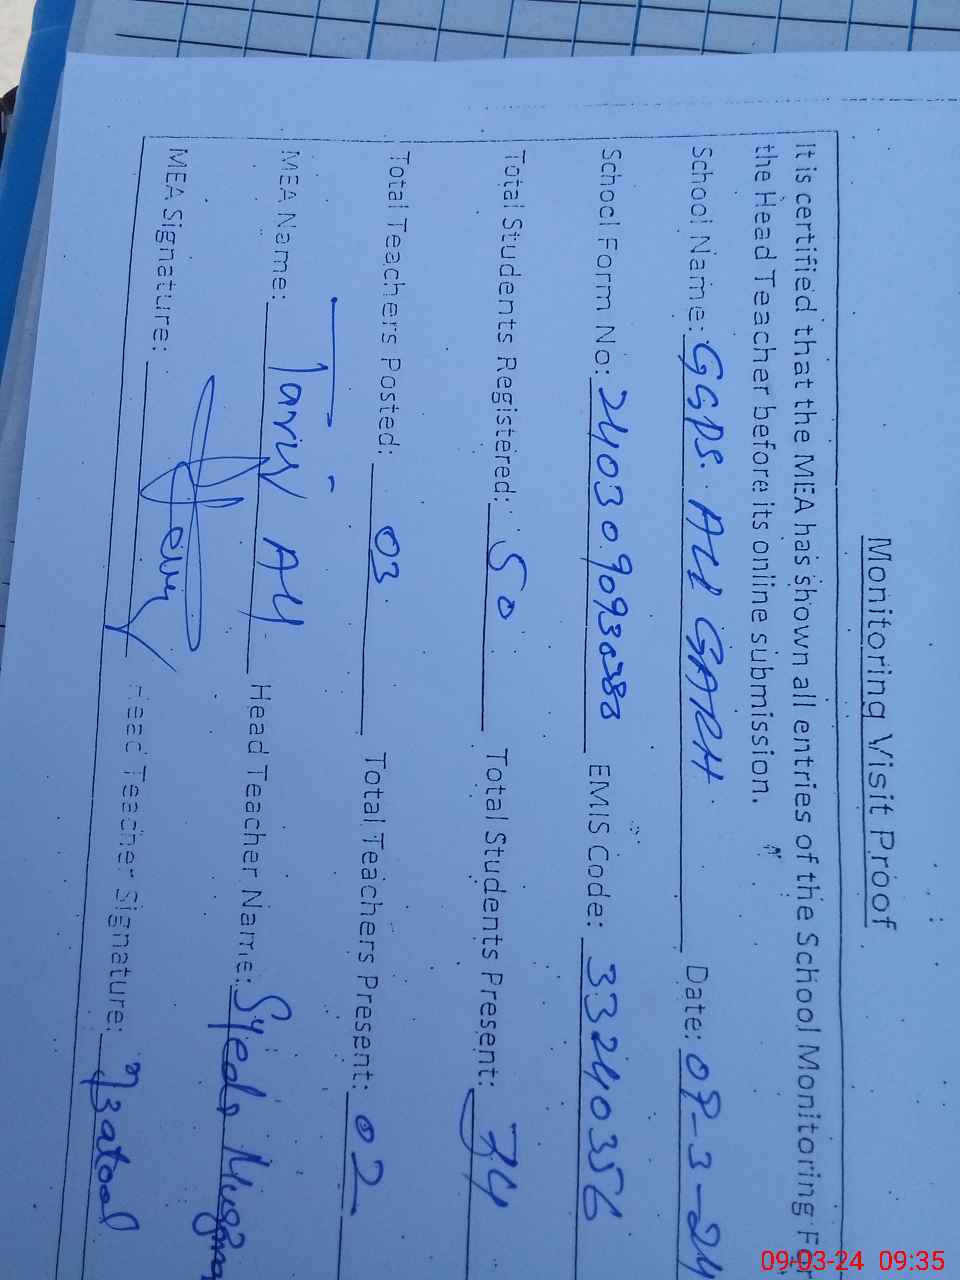 Monitoring Visit Proof
It is certified that the MEA has shown all entries of the School Monitoring For
the Head Teacher before its online submission.
School Name: GGPS. ALI GARH Date: 09-3-24
School Form No: 2403090930280 EMIS Code: 33240356
Total Students Registered: 50 Total Students Present: 34
Total Teachers Posted: 03 Total Teachers Present: 02
MEA Name: Tariq Ali Head Teacher Name: Syeda
MEA Signature: Head Teacher Signature: Batool
09-03-24 09:35